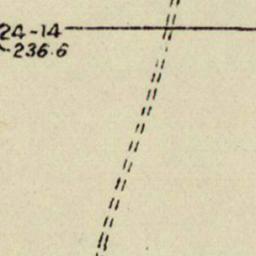 24-14
236.6